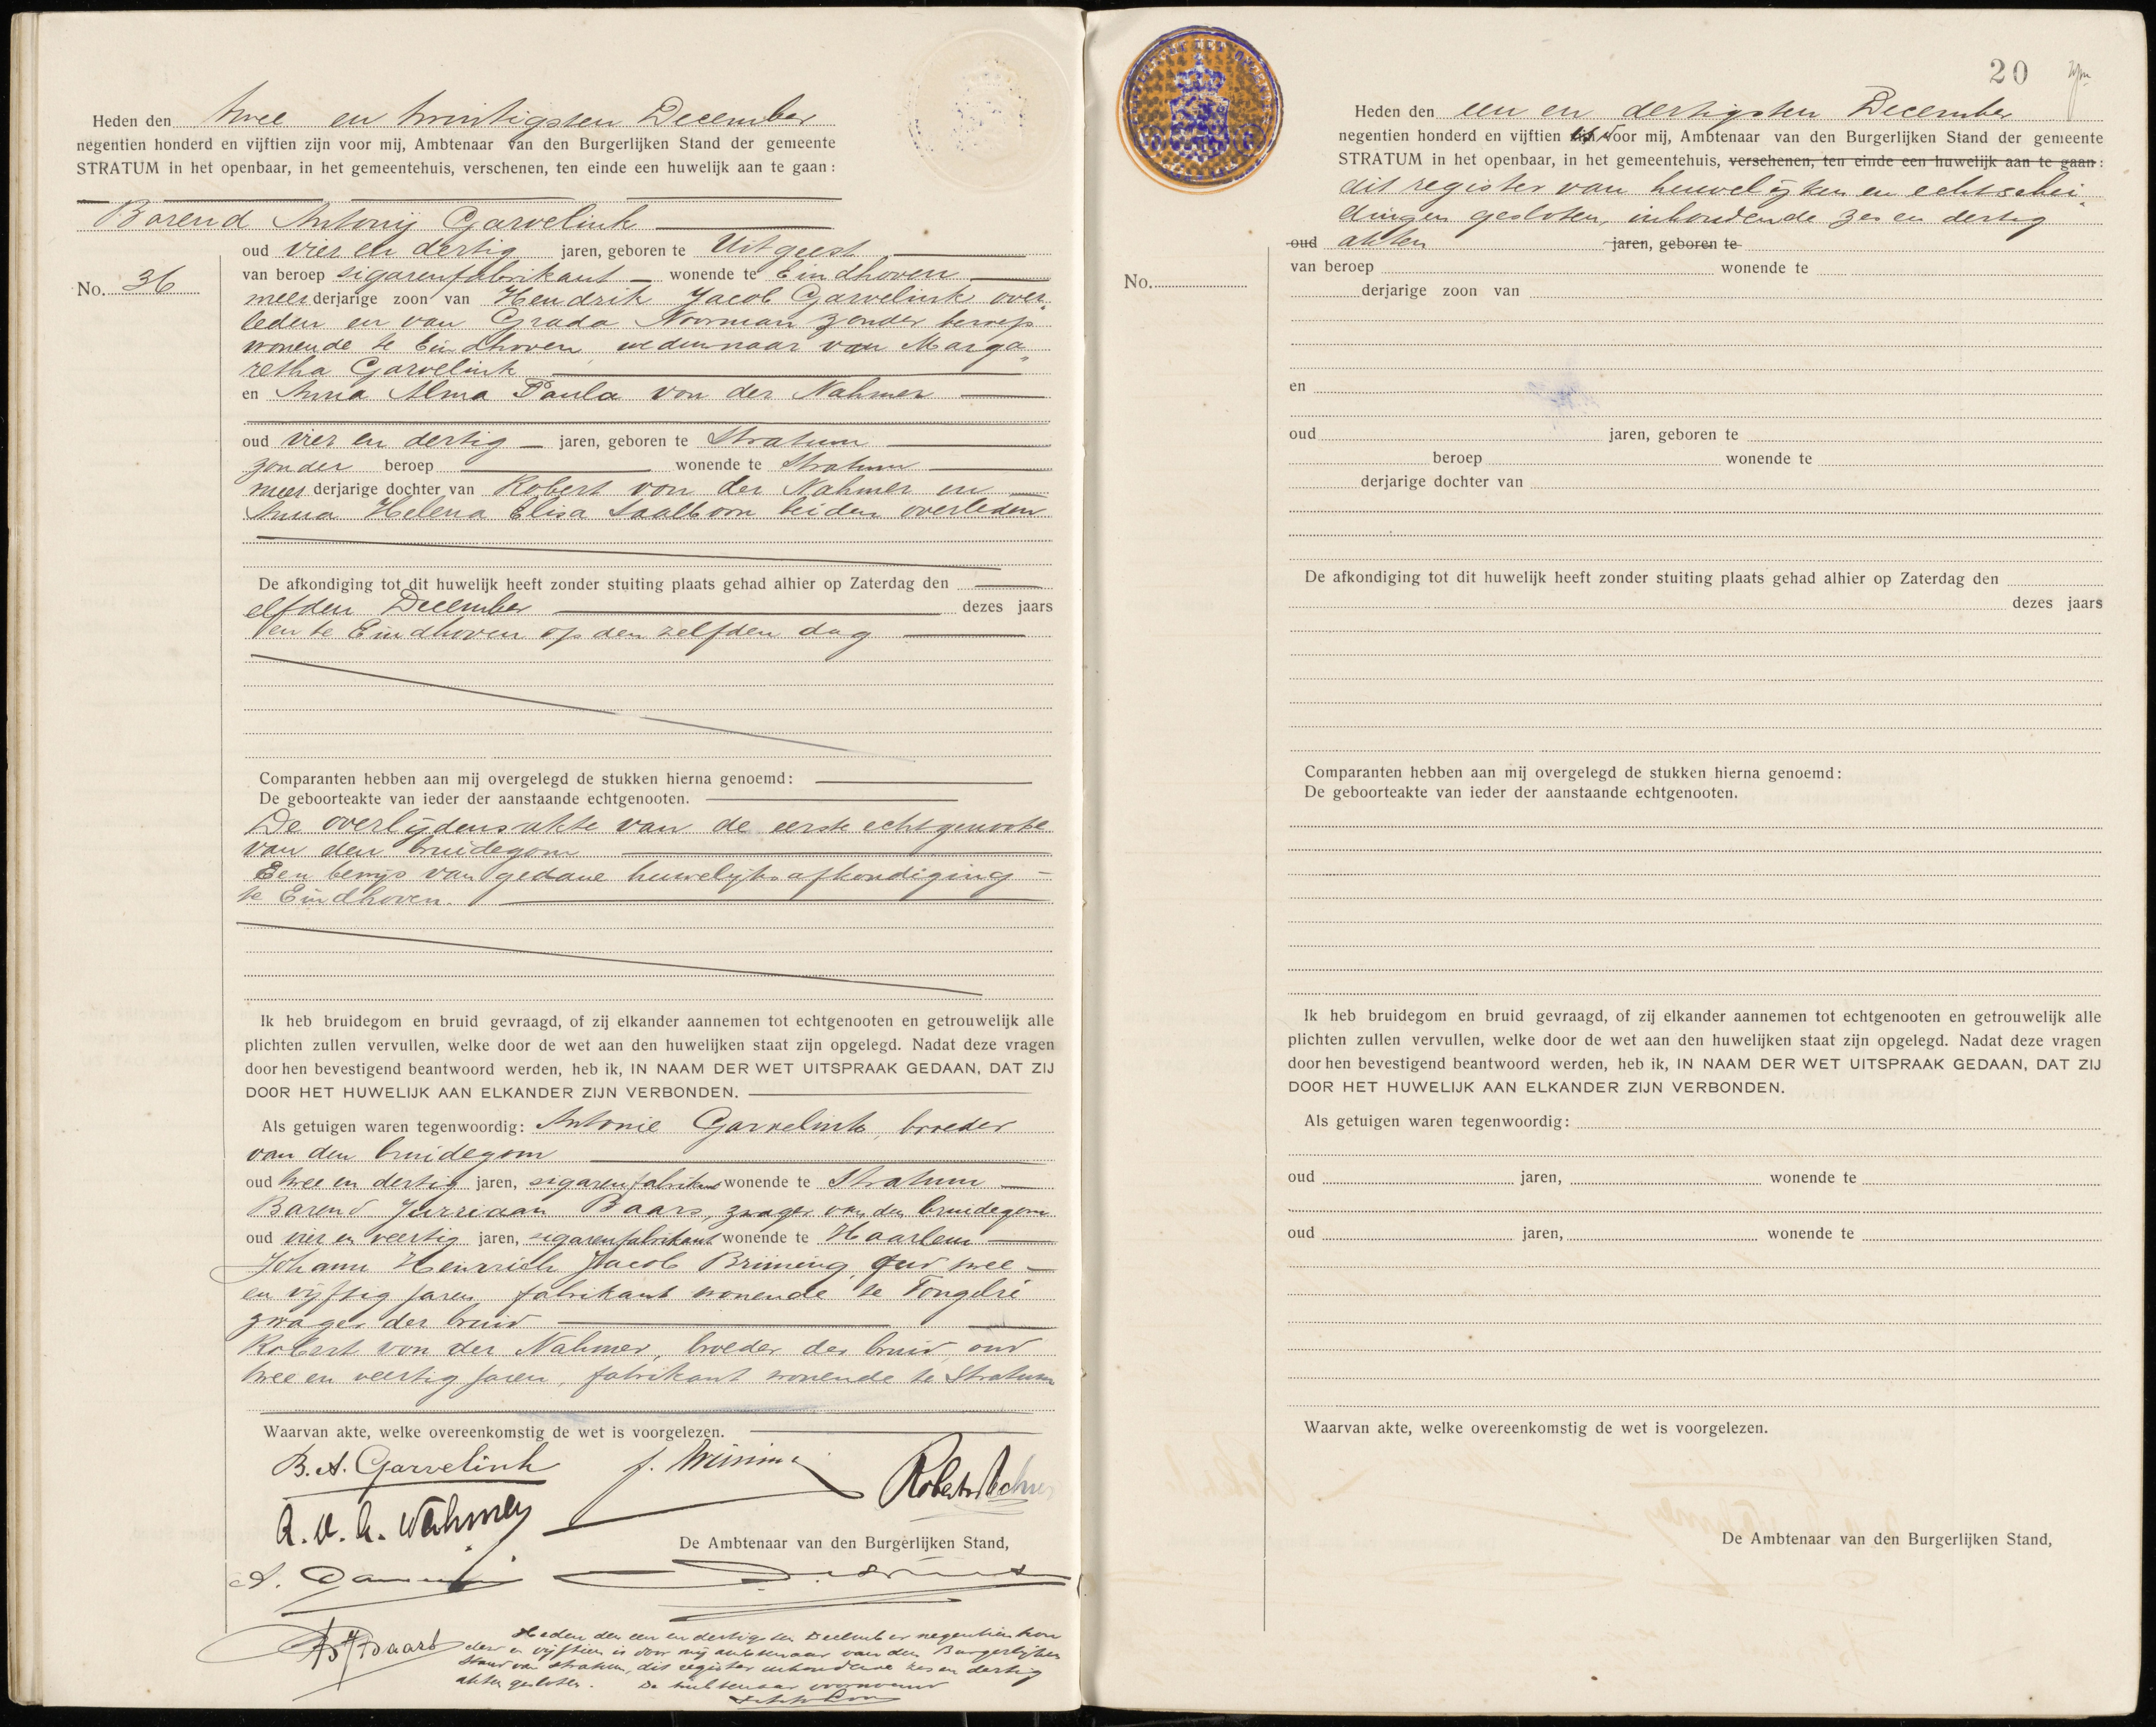 Heden den twee en twintigsten December
negentien honderd en vijftien zijn voor mij, Ambtenaar van den Burgerlijken Stand der gemeente
STRATUM in het openbaar, in het gemeentehuis, verschenen, ten einde een huwelijk aan te gaan:
Barend Antonij Garvelink
oud vier en dertig jaren, geboren te Uitgeest
No. 36
van beroep sigarenfabrikant wonende te Eindhoven
meerderjarige zoon van Hendrik Jacob Garvelink over„
leden en van Grada Noorman zonder beroep
wonende te Eindhoven, weduwnaar van Marga„
retha Garvelink
en Anna Alma Paula von der Nahmer
oud vier en dertig jaren, geboren te Stratum
zonder beroep wonende te Stratum
meerderjarige dochter van Robert von der Nahmer en
Anna Helena Elisa Saalborn beiden overleden
De afkondiging tot dit huwelijk heeft zonder stuiting plaats gehad alhier op Zaterdag den
elfden December dezes jaars
en te Eindhoven op den zelfden dag
Comparanten hebben aan mij overgelegd de stukken hierna genoemd:
De geboorteakte van ieder der aanstaande echtgenooten.
De overlijdensakte van de eerste echtgenoote
van den bruidegom
Een bewijs van gedane huwelijksafkondiging
te Eindhoven.
Ik heb bruidegom en bruid gevraagd, of zij elkander aannemen tot echtgenooten en getrouwelijk alle
plichten zullen vervullen, welke door de wet aan den huwelijken staat zijn opgelegd. Nadat deze vragen
door hen bevestigend beantwoord werden, heb ik, IN NAAM DER WET UITSPRAAK GEDAAN, DAT ZIJ
DOOR HET HUWELIJK AAN ELKANDER ZIJN VERBONDEN.
Als getuigen waren tegenwoordig: Antonie Garvelink, broeder
van den bruidegom
oud twee en dertig jaren, sigarenfabrikant wonende te Stratum
Barend Jurriaan Baars, zwager van den bruidegom
oud vier en veertig jaren, sigarenfabrikant wonende te Haarlem
Johann Heinrich Jacob Brüning, oud twee
en vijftig jaren fabrikant wonende te Tongelre
zwager der bruid
Robert von der Nahmer, broeder der bruid, oud
twee en veertig jaren, fabrikant wonende te Stratum
Waarvan akte, welke overeenkomstig de wet is voorgelezen.
B. A. Garvelink
A. v. d. Nahmer
De Ambtenaar van den Burgerlijken Stand,
Baars
Heden den een en dertigsten December negentien hon
derd en vijftien is door mij ambtenaar van den Burgerlijken
Stand van Stratum, dit register inhoudende zes en dertig
akten gesloten. De ambtenaar voornoemd
20
Heden den een en dertigsten December
negentien honderd en vijftien is door mij, Ambtenaar van den Burgerlijken Stand der gemeente
STRATUM in het openbaar, in het gemeentehuis, verschenen, ten einde een huwelijk aan te gaan:
dit register van huwelijken en echtschei„
dingen gesloten, inhoudende zes en dertig
oud akten jaren, geboren te
van beroep wonende te
No.
derjarige zoon van
en
oud jaren, geboren te
beroep wonende te
derjarige dochter van
De afkondiging tot dit huwelijk heeft zonder stuiting plaats gehad alhier op Zaterdag den
dezes jaars
Comparanten hebben aan mij overgelegd de stukken hierna genoemd:
De geboorteakte van ieder der aanstaande echtgenooten.
Ik heb bruidegom en bruid gevraagd, of zij elkander aannemen tot echtgenooten en getrouwelijk alle
plichten zullen vervullen, welke door de wet aan den huwelijken staat zijn opgelegd. Nadat deze vragen
door hen bevestigend beantwoord werden, heb ik, IN NAAM DER WET UITSPRAAK GEDAAN, DAT ZIJ
DOOR HET HUWELIJK AAN ELKANDER ZIJN VERBONDEN.
Als getuigen waren tegenwoordig:
oud jaren, wonende te
oud jaren, wonende te
Waarvan akte, welke overeenkomstig de wet is voorgelezen.
De Ambtenaar van den Burgerlijken Stand,